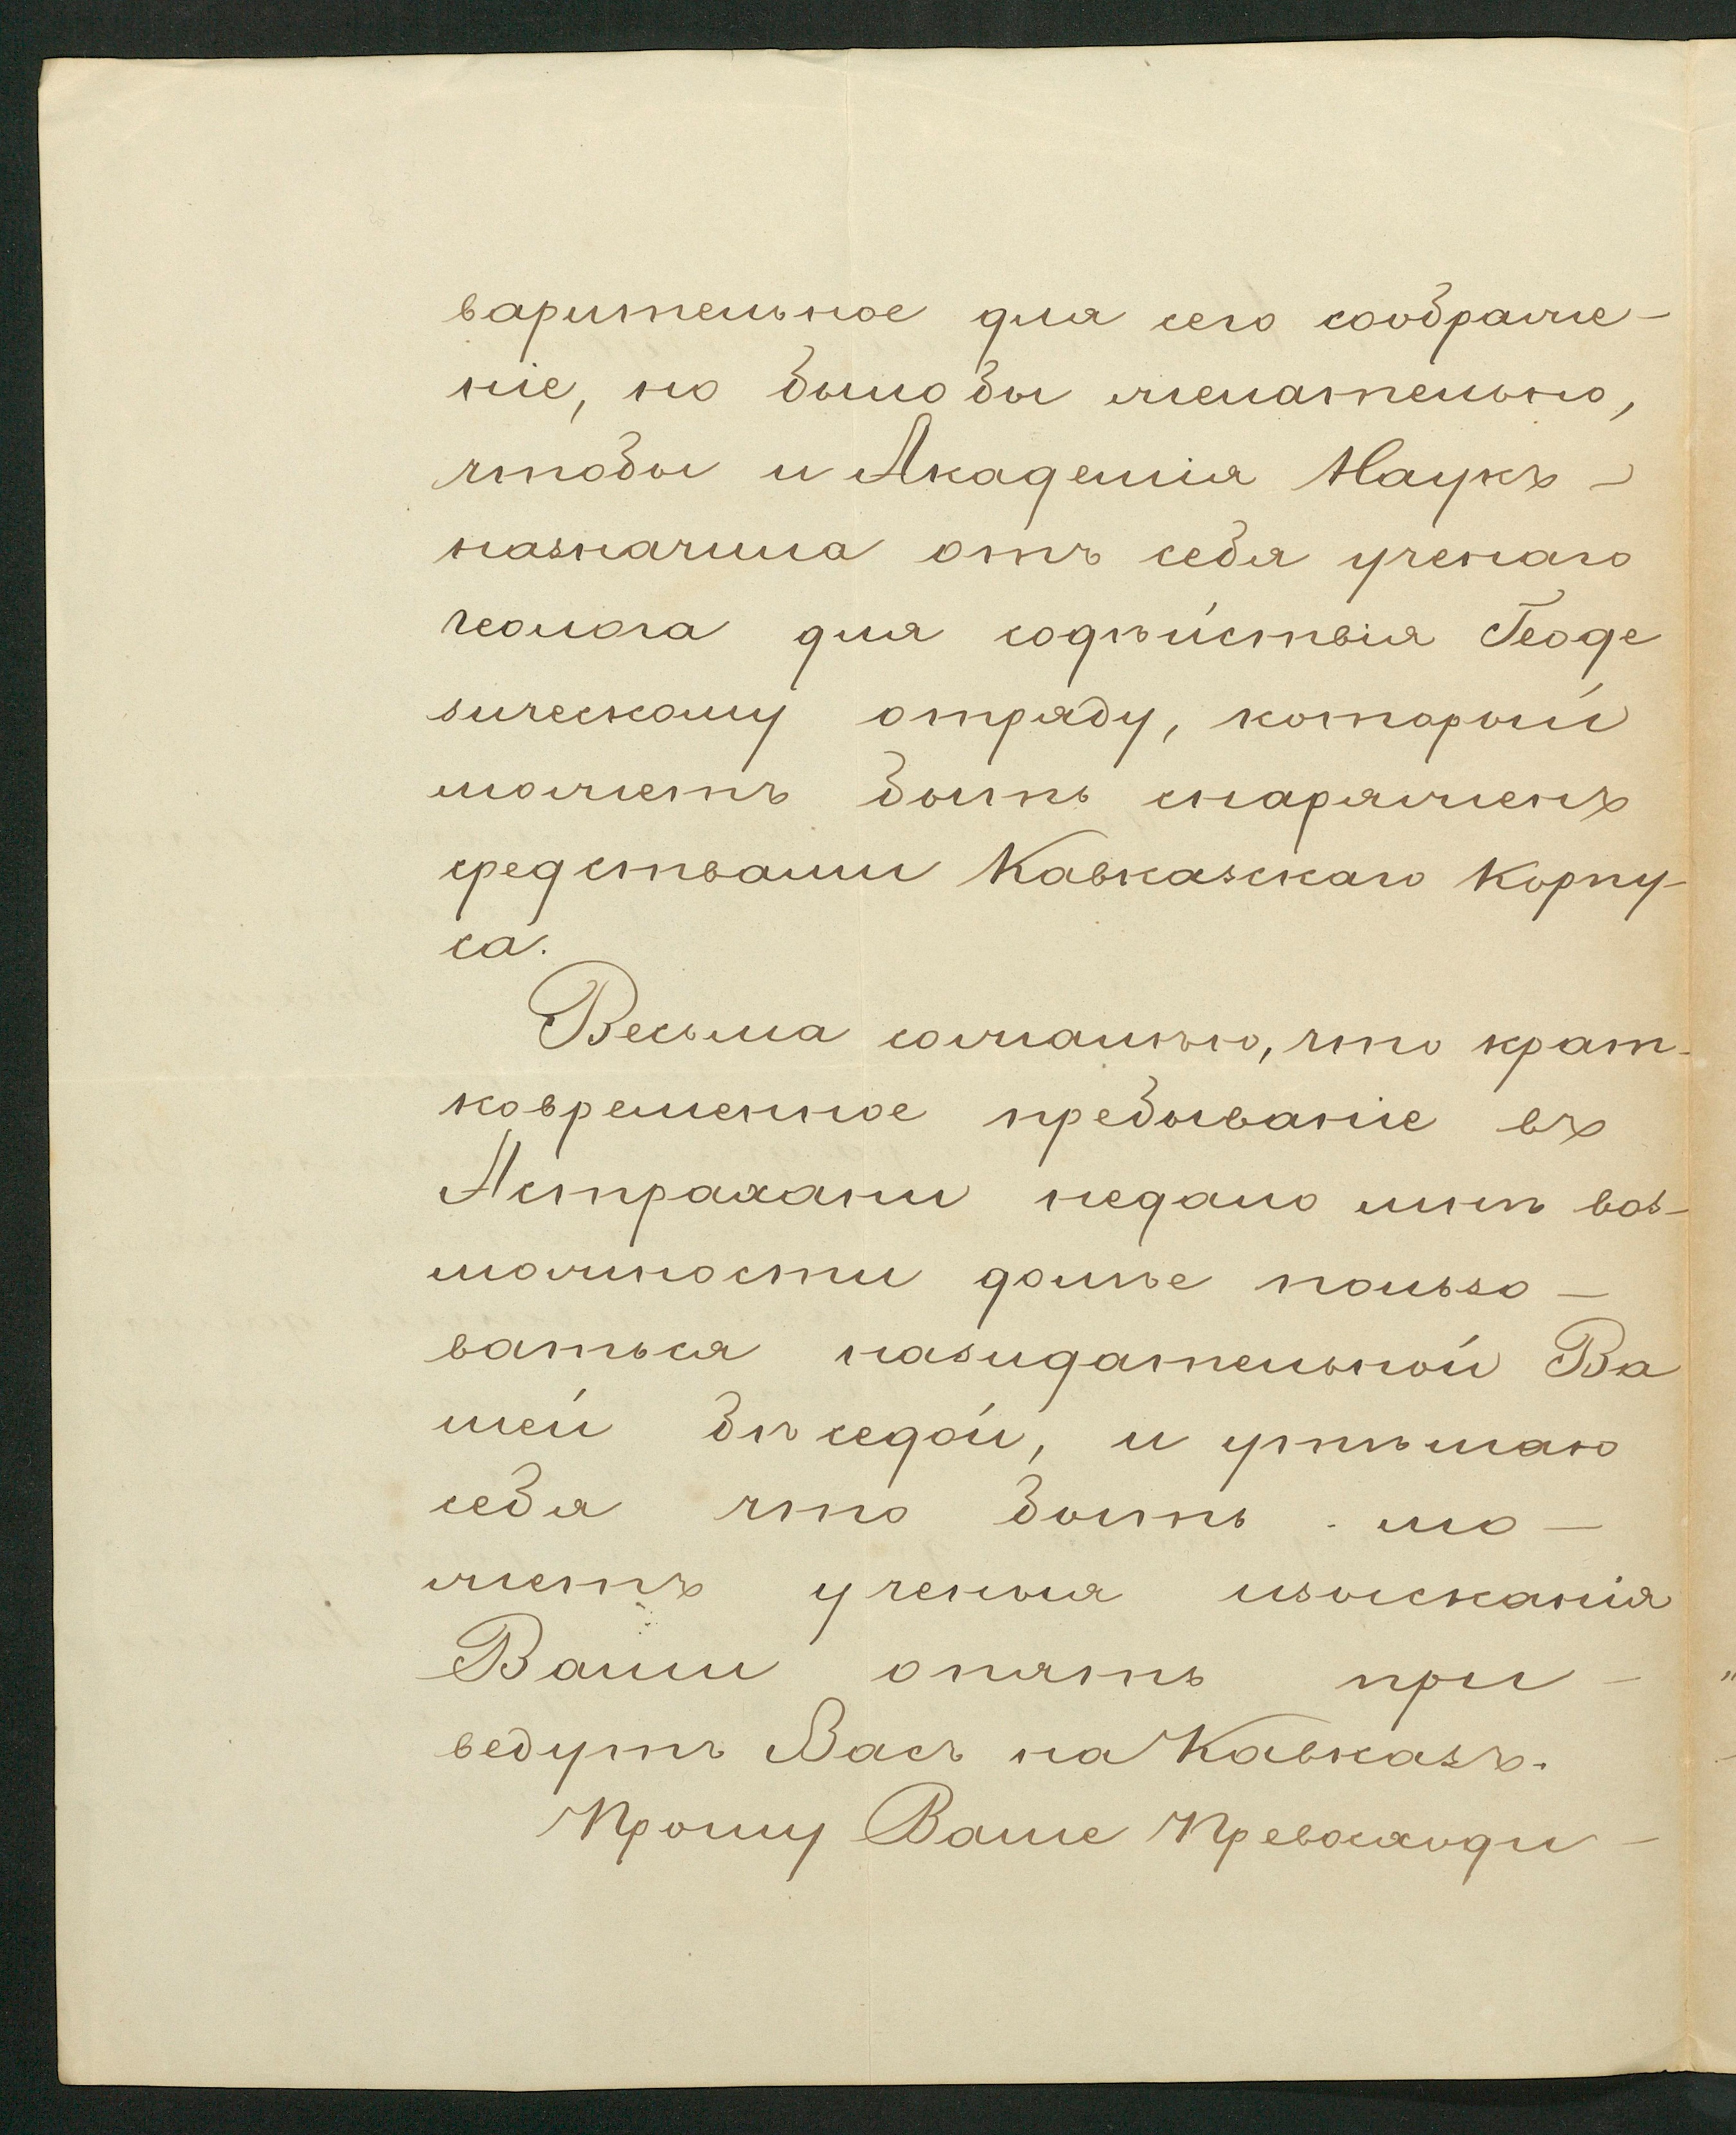 варительное для сего соображе-
ніе, но былобы желательно,
чтобы и Академія Наукъ -
назначила отъ себя ученаго
геолога для содѣйствія Геоде
зическому отряду, который
можетъ быть снаряженъ
средствами Кавказскаго Корпу-
са.
Весьма сожалѣю, что крат-
ковременное пребываніе въ
Астрахани недало мнѣ воз-
можности долѣе пользо-
ваться назидательной Ва
шей бѣседой, и утѣшаю
себя что быть мо-
жетъ ученыя изысканія
Ваши опять при-
ведутъ Васъ на Кавказъ.
Прошу Ваше Превосходи-